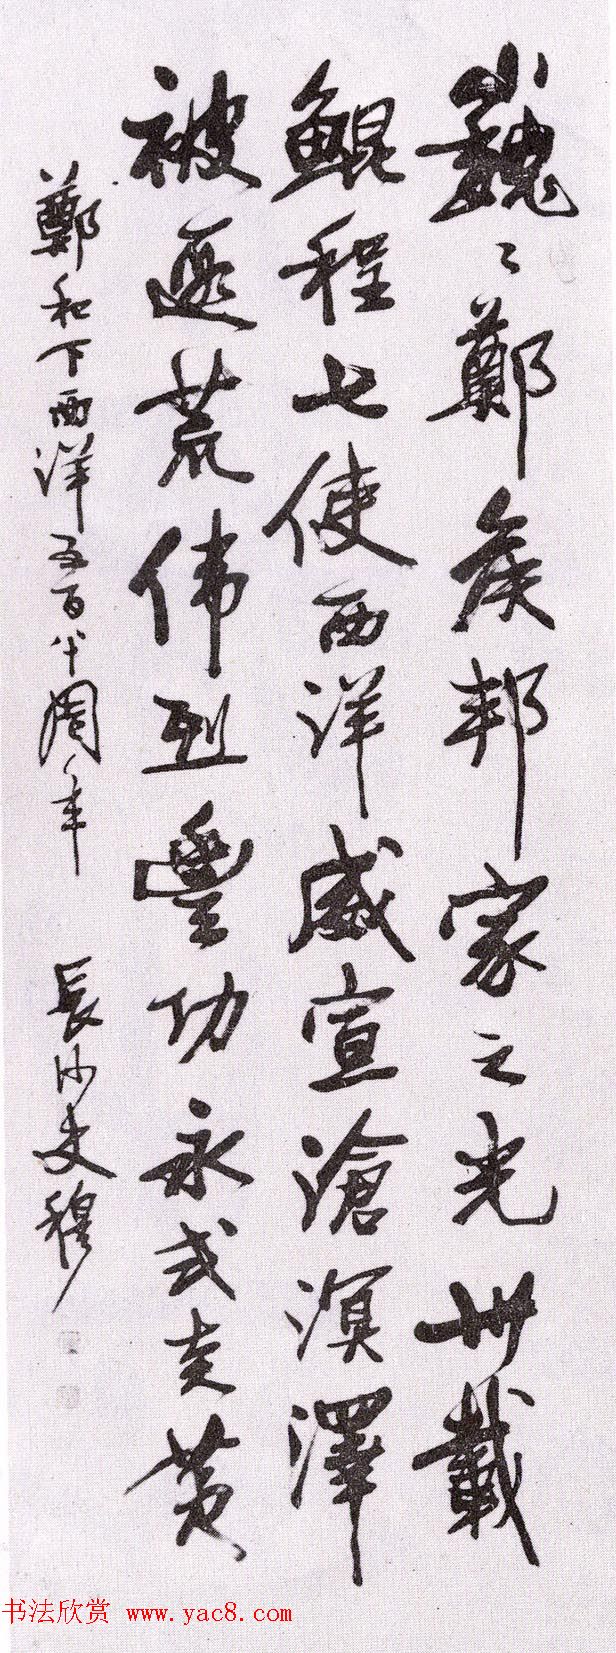 巍〻鄭矦邦家之光卅載
鯤程七使西洋威宣滄溟澤
被遐荒伟烈豐功永式炎黄
鄭和下西洋五百八十周年 長沙史穆
书法欣赏 www.yac8.com